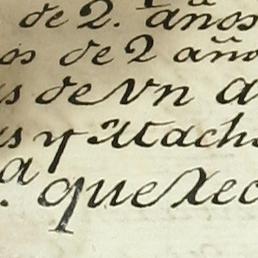 de 2. años
os de 2 año
s de Vn a
s y Mach
a que Xec